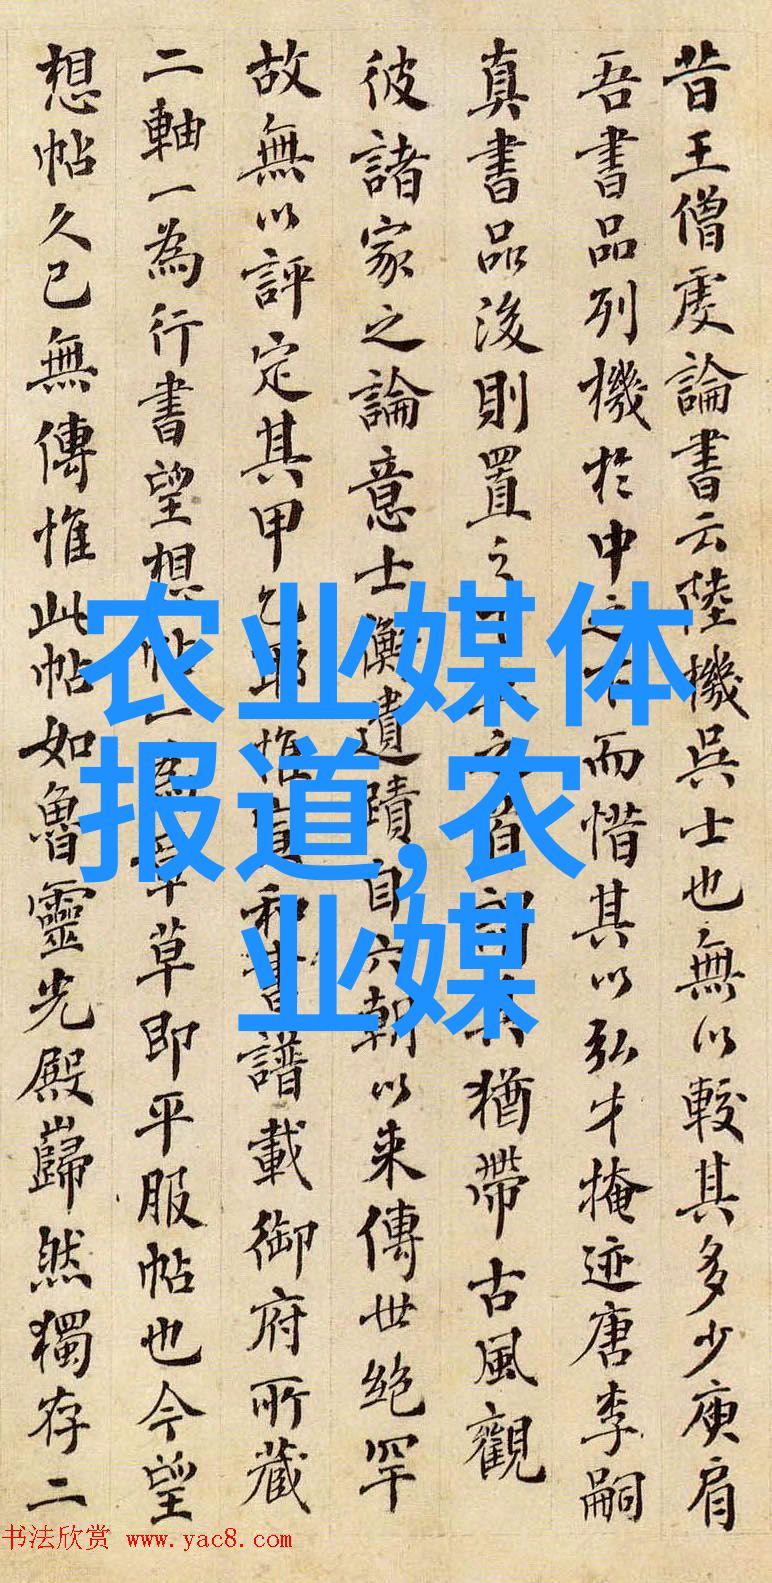 昔王僧虔論書云陸機吳士也無以較其多少庾肩
吾書品列機於中之下而惜其以弘才掩迹唐李嗣
真書品後則置之之首猶帶古風觀
彼諸家之論意士衡遺蹟自六朝以来傳世絕罕
故無以評定其甲乙耶惟宣和書譜載御府所藏
二軸一為行書望想帖一為章草即平服帖也今望
想帖久已無傳惟此帖如魯靈光殿巋然獨存二
农业媒体
报道,农
业媒
书法欣赏 www.yac8.com